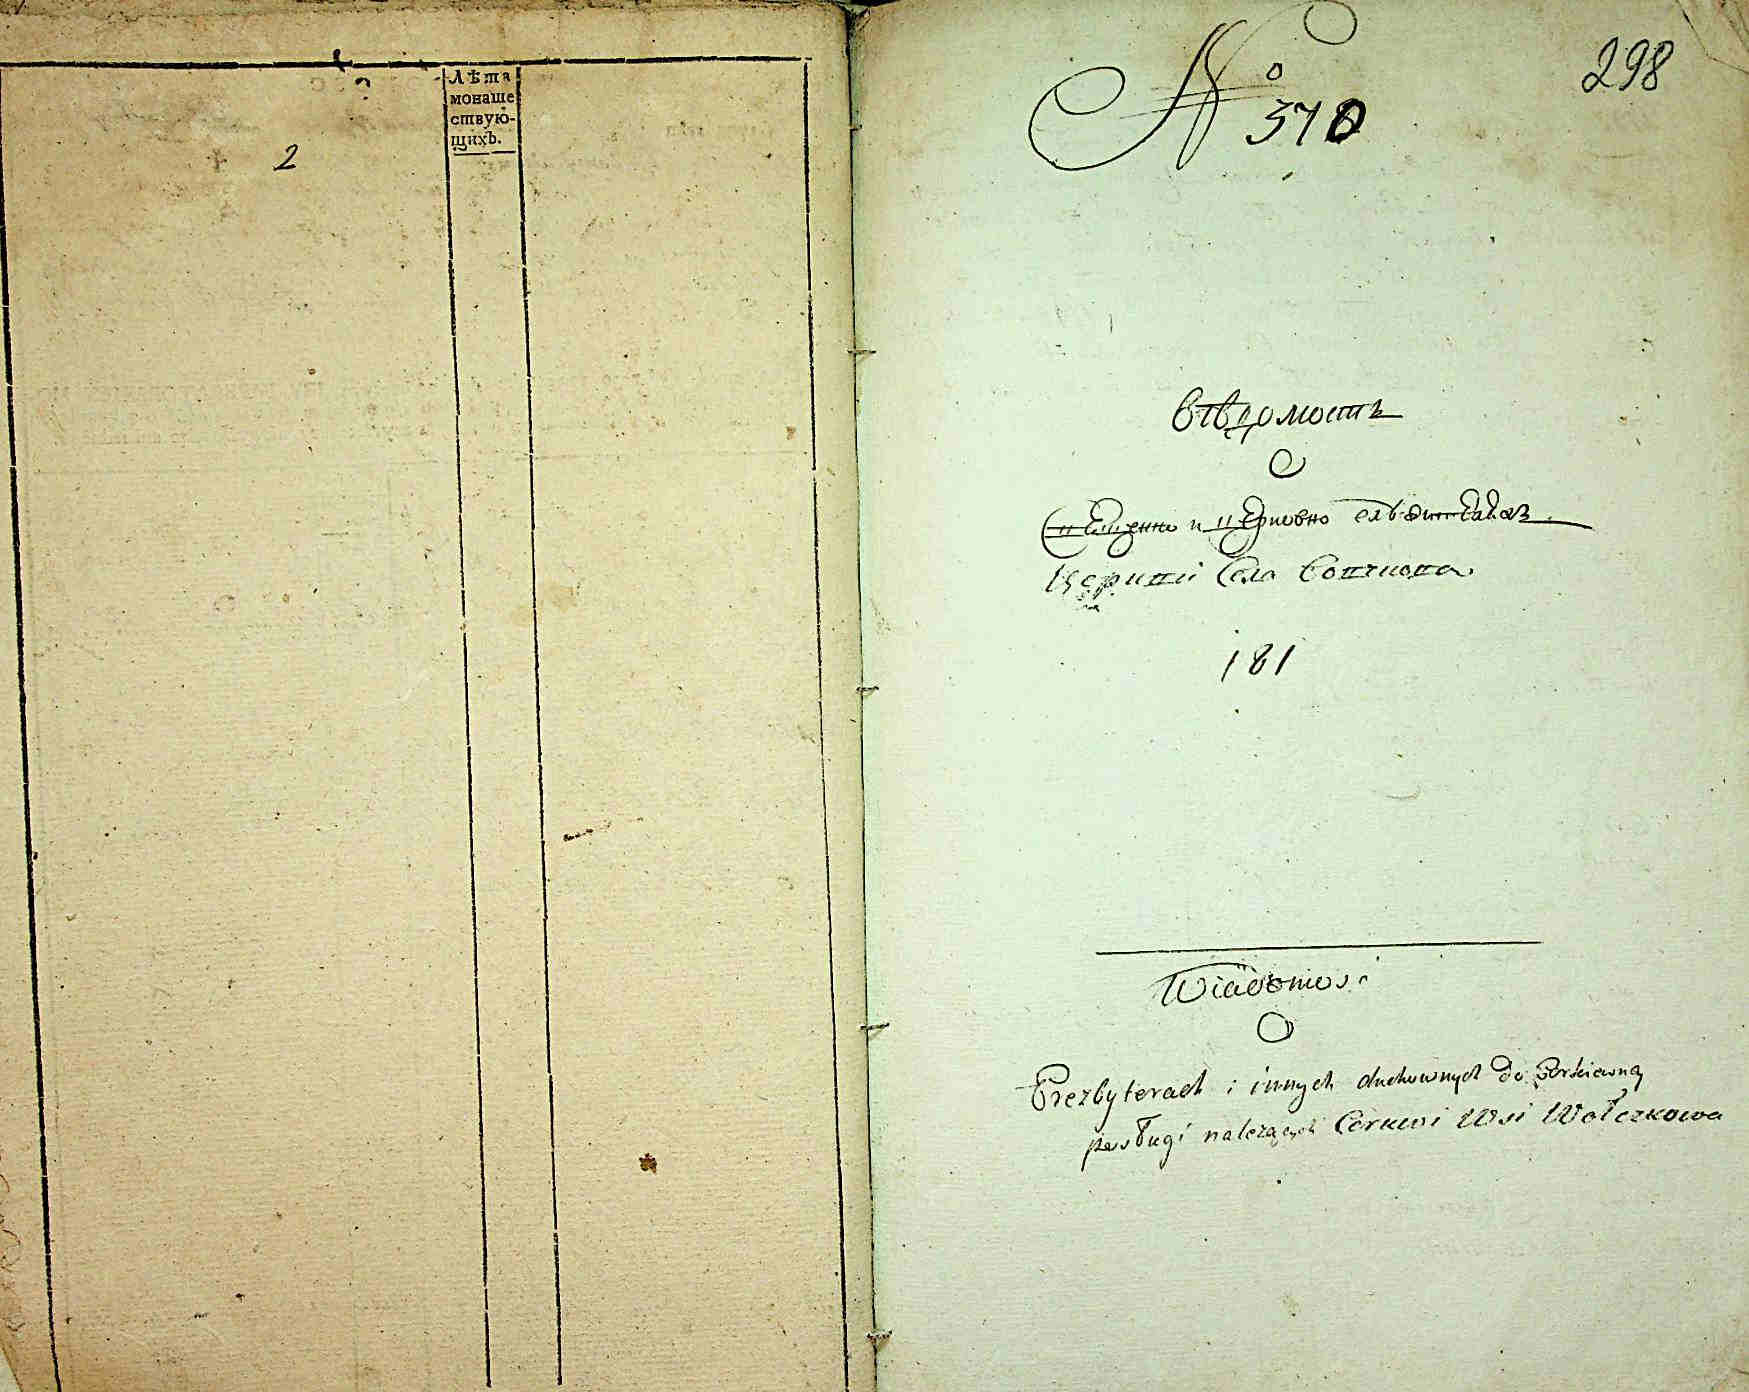 Лѣта
монаше
ствую-
щихъ.
2
298
№ 370
Вѣдомость
О
Священно и Церковно служителяхъ
Церкви Села Волчкова
181
Wiadomość
O
Prezbyterach i innych duchownych do Cerkiewney
posługi należących Cerkwi Wsi Wołczkowa